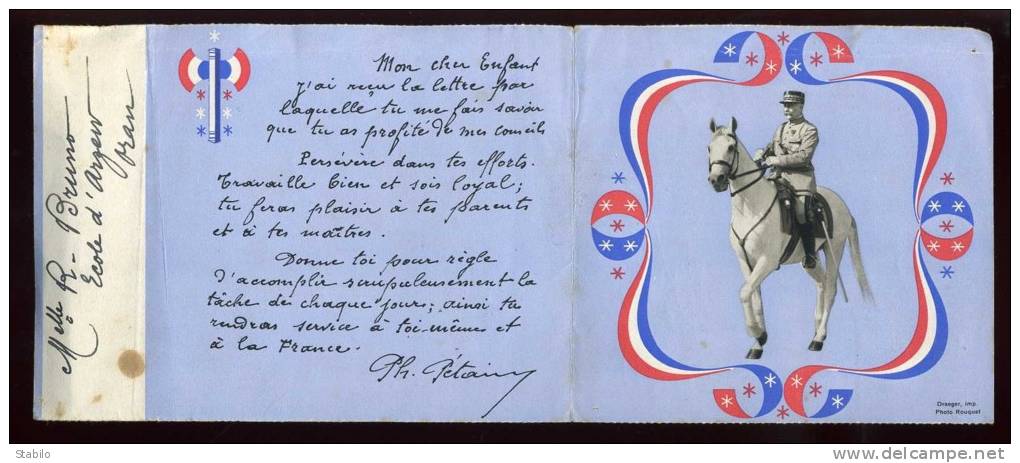 Melle R. Bruno
Ecole d'Arzew
Oran
Mon cher Enfant
j'ai reçu la lettre par
laquelle tu me fais savoir
que tu as profité de mes conseils
Persévère dans tes efforts.
Travaille bien et sois loyal;
tu feras plaisir à tes parents
et à tes maîtres.
Donne toi pour règle
d'accomplir scrupuleusement la
tâche de chaque jours; ainsi tu
rendras service à toi-même et
à la France.
Ph. Pétain
Draeger, imp.
Photo Rouquet
Stabilo
www.delcampe.net